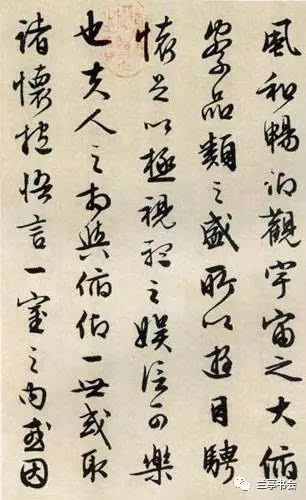 風和暢仰觀宇宙之大俯
察品類之盛所以遊目騁
懷足以極視聽之娱信可樂
也夫人之相與俯仰一世或取
諸懷抱悟言一室之内或因
兰亭书会